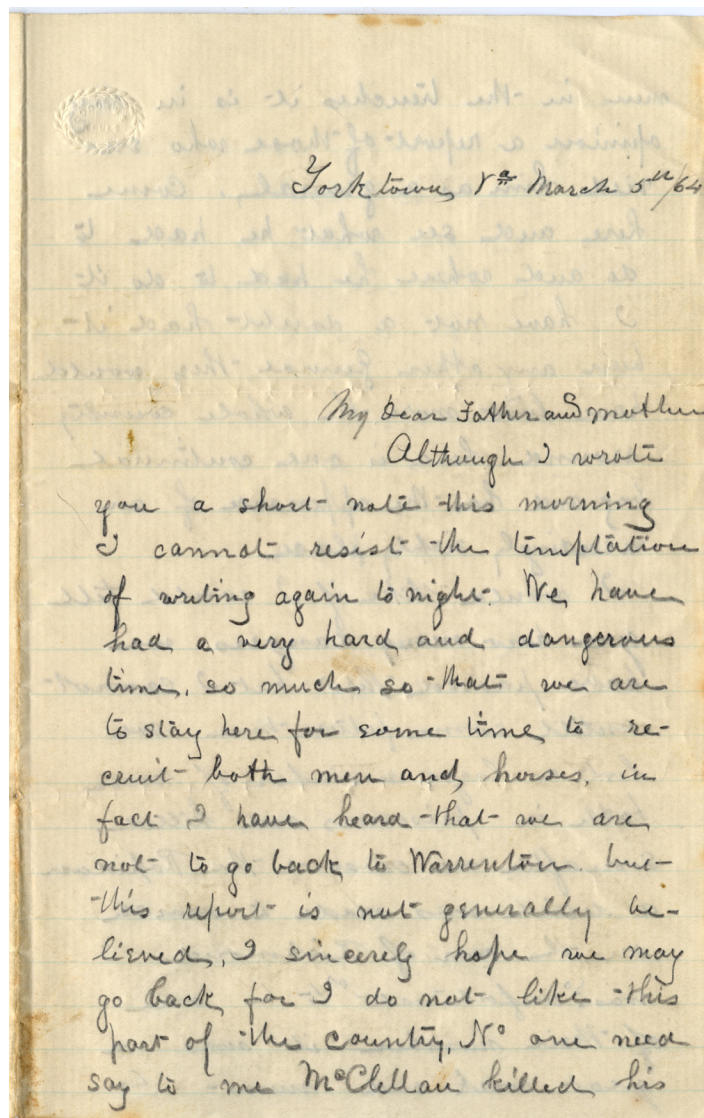 Yorktown, Va March 5th/64
My Dear Father and mother
Although I wrote
you a short note this morning
I cannot resist the temptation
of writing again to night. We have
had a very hard and dangerous
time, so much so that we are
to stay here for some time to re-
cruit both men and horses, in
fact I have heard that we are
not to go back to Warrenton. but
this report is not generally be-
lieved, I sincerely hope we may
go back for I do not like this
part of the country, No one need
say to me McClellan killed his